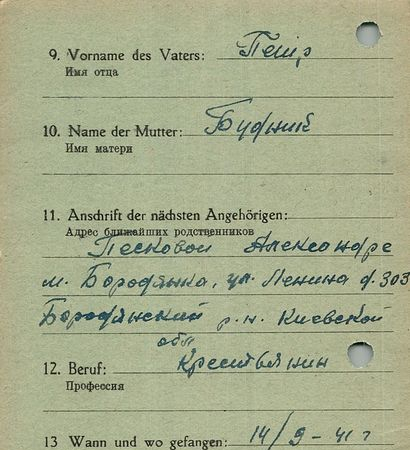 9. Vorname des Vaters: Петр
Имя отца
10. Name der Mutter: Будник
Имя матери
11. Anschrift der nächsten Angehörigen:
Адрес ближайших родственников
Песковой Александре
м. Бородянка, ул. Ленина д. 303
Бородянский р.н. Киевской
обл
12. Beruf: Крестьянин
Профессия
13 Wann und wo gefangen: 14/9 - 41 г